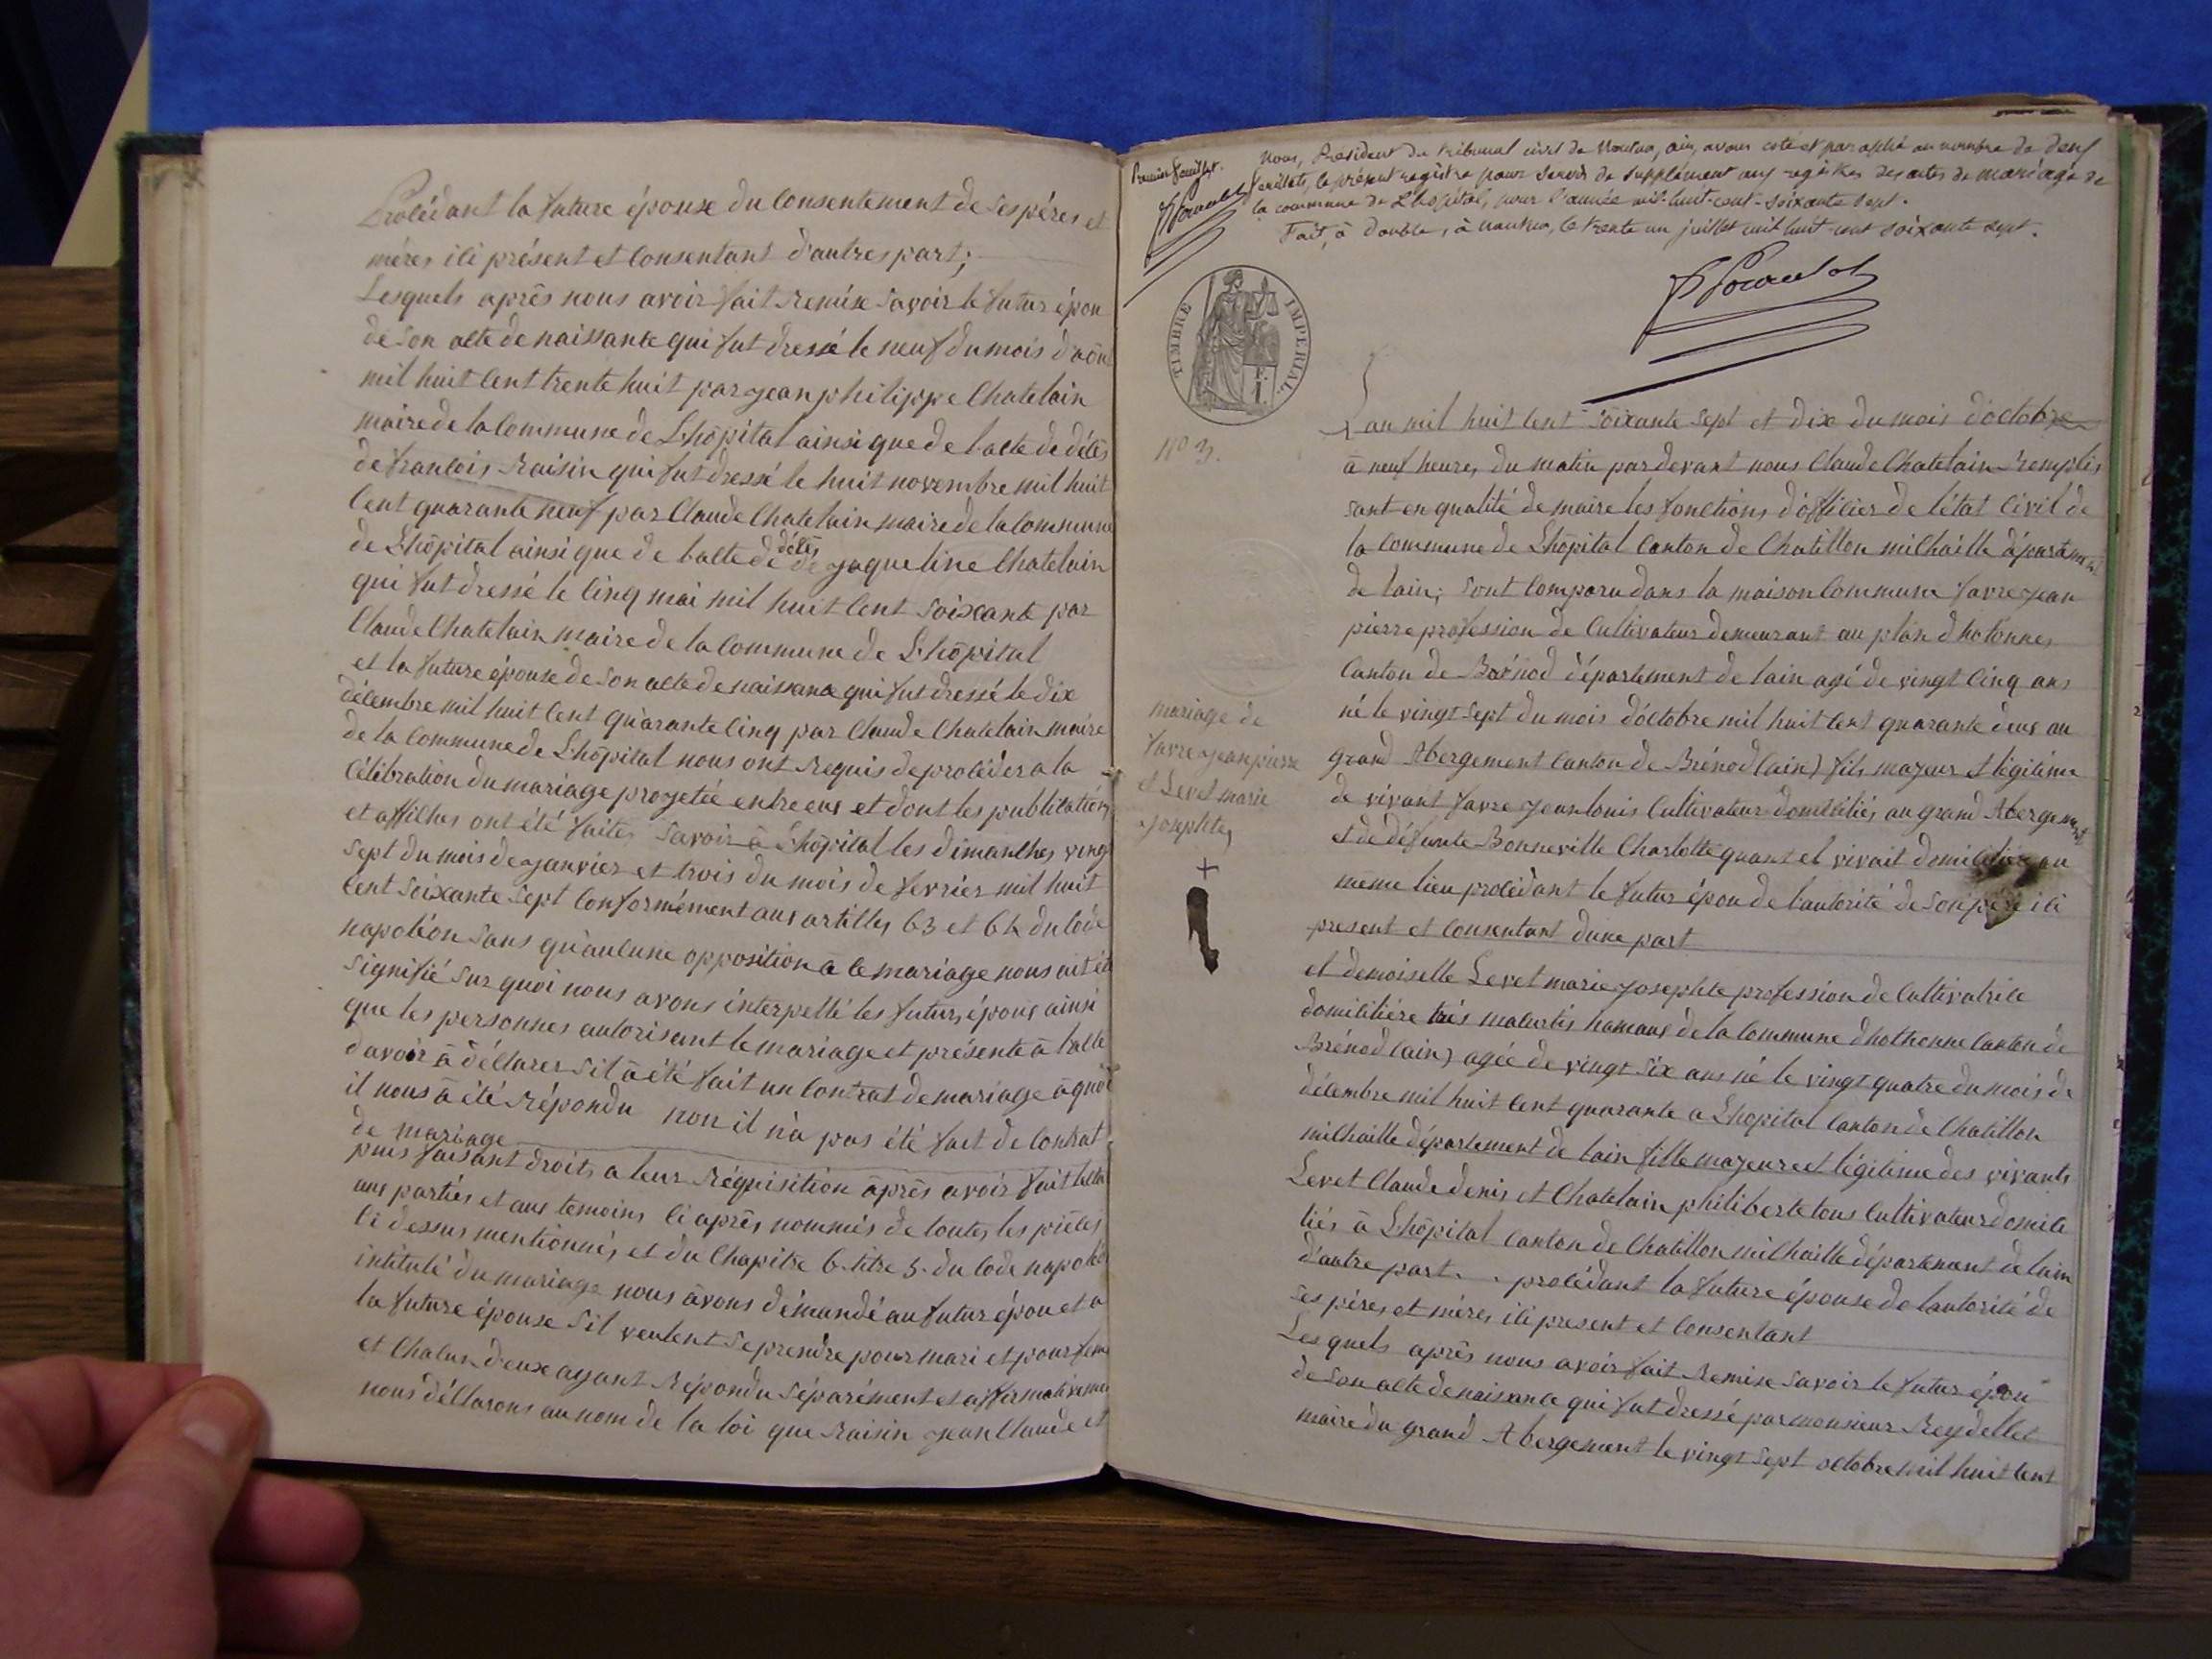 Procédant la future épouse du Consentement de ses péres et
méres ici présent et Consentant d'autres part;
Lesquels après nous avoir fait Remise savoir le futur épou
de son acte de naissance qui fut dressé le neuf du mois d'aôu
mil huit Cent trente huit par jean philippe Chatelain
maire de la Commune de L'hôpital ainsi que de l'acte de décès
de francois Raisin qui fut dressé le huit novembre mil huit
Cent quarante neuf par Claude Chatelain maire de la Commune
de L'hôpital ainsi que de l'acte de décès de jaqueline Chatelain
qui fut dressé le Cinq mai mil huit Cent soixante par
Claude Chatelain maire de la Commune de L'hôpital
et la future épouse de son acte de naissance qui fut dressé le dix
décembre mil huit Cent quarante Cinq par Claude Chatelain maire
de la Commune de L'hôpital nous ont Requis de procéder a la
Célébration du mariage projetée entre eux et dont les publications
et affiches ont été faites savoir à L'hôpital les dimanches vingt
sept du mois de janvier et trois du mois de fevrier mil huit
Cent soixante sept Conformément aux articles 63 et 64 du Code
napoléon sans qu'aucune opposition a ce mariage nous ait été
signifié sur quoi nous avons interpellé les futurs époux ainsi
que les personnes autorisant le mariage et présente à l'acte
d'avoir à déclarer s'il à été fait un Contrat de mariage à quoi
il nous à été Répondu non il n'a pas été fait de Contrat
de mariage
puis faisant droits a leur Réquisition àprès avoir fait lectu
aux parties et aux temoins Ci après nommés de toutes les pièces
Ci dessus mentionnés et du Chapitre 6. titre 5. du Code napoléon
intitulé du mariage nous avons démandé au futur épou et a
la future épouse s'il veulent se prendre pour mari et pour fem
et Chacun d'eux ayant Répondu séparément et affirmativemen
nous déclarons au nom de la loi que Raisin jean Claude et
Premier feuillet.
Nous, Président du tribunal civil de Nantua, ain, avons coté et paraphé au nombre de deux
feuillets, le présent registre pour servir de supplément aux registres des actes de mariage de
la commune de L'hôpital, pour l'année mil-huit-cent-soixante sept.
Fait, à double, à nantua, le trente un juillet mil huit cent soixante sept.
TIMBRE IMPERIAL
N° 3.
L'an mil huit Cent soixante sept et dix du mois d'octobre
à neuf heures du matin pardevant nous Claude Chatelain Remplis
sant en qualité de maire les fonctions d'officier de l'état Civil de
la Commune de L'hôpital Canton de Chatillon milhaille département
de l'ain; sont Comparu dans la maison Commune favre jean
pierre profession de Cultivateur demeurant au plan d'hotonnes
Canton de Brénod département de l'ain agé de vingt Cinq ans
né le vingt sept du mois d'octobre mil huit Cent quarante deux au
grand Abergement Canton de Brénod (ain) fils mageur et légitime
de vivant favre jean louis Cultivateur domiciliés au grand Abergement
et de défunte Bonneville Charlotte quant el vivait domiciliée au
même lieu procédant le futur épou de l'autorité de son père ici
present et Consentant d'une part
mariage de
favre jean pierre
et Levet marie
josephte,
+
et demoiselle Levet marie josephte profession de Cultivatrice
domicilière très malcrtis hamaux de la Commune d'hothonne Canton de
Brénod (ain) agée de vingt six ans né le vingt quatre du mois de
décembre mil huit Cent quarante a L'hopital Canton de Chatillon
milhaille département de l'ain fille mageure et légitime des vivants
Levet Claude denis et Chatelain philiberte tous Cultivateur domici
liés à L'hôpital Canton de Chatillon milhaille département de l'ain
d'autre part. . procédant la future épouse de l'autorité de
ses péres et mères ici present et Consentant
Lesquels après nous avoir fait Remise savoir le futur épou
de son acte de naissance qui fut dressé par monsieur Reydellet
maire du grand Abergement le vingt sept octobre mil huit Cent